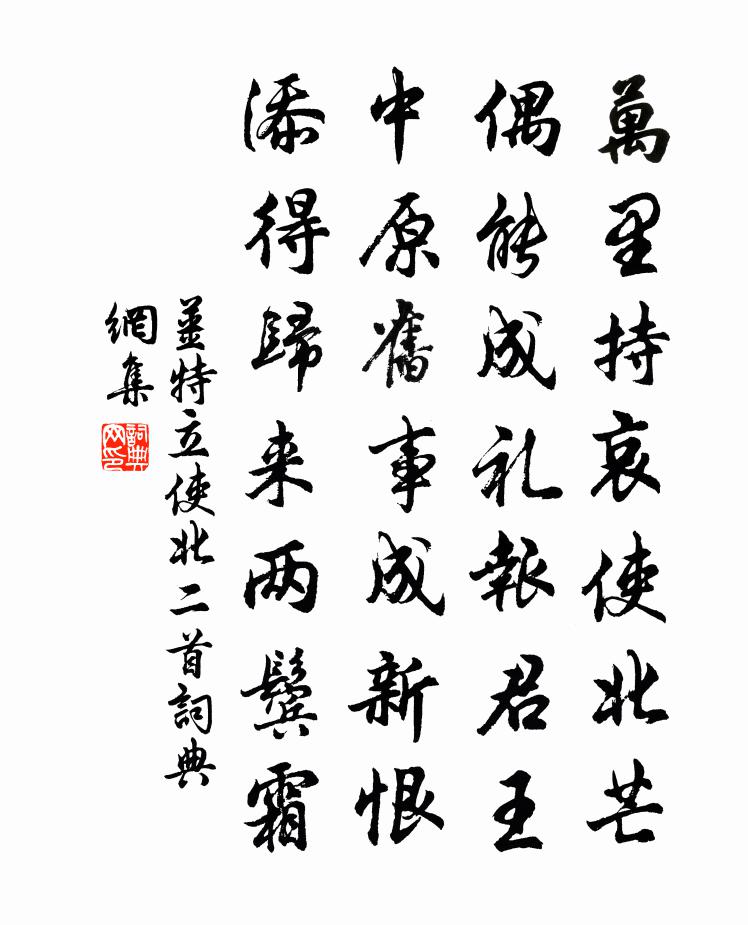 萬里持哀使北芒
偶能成礼報君王
中原舊事成新恨
添得歸来两鬓霜
姜特立使北二首詞典
網集
詞典网印